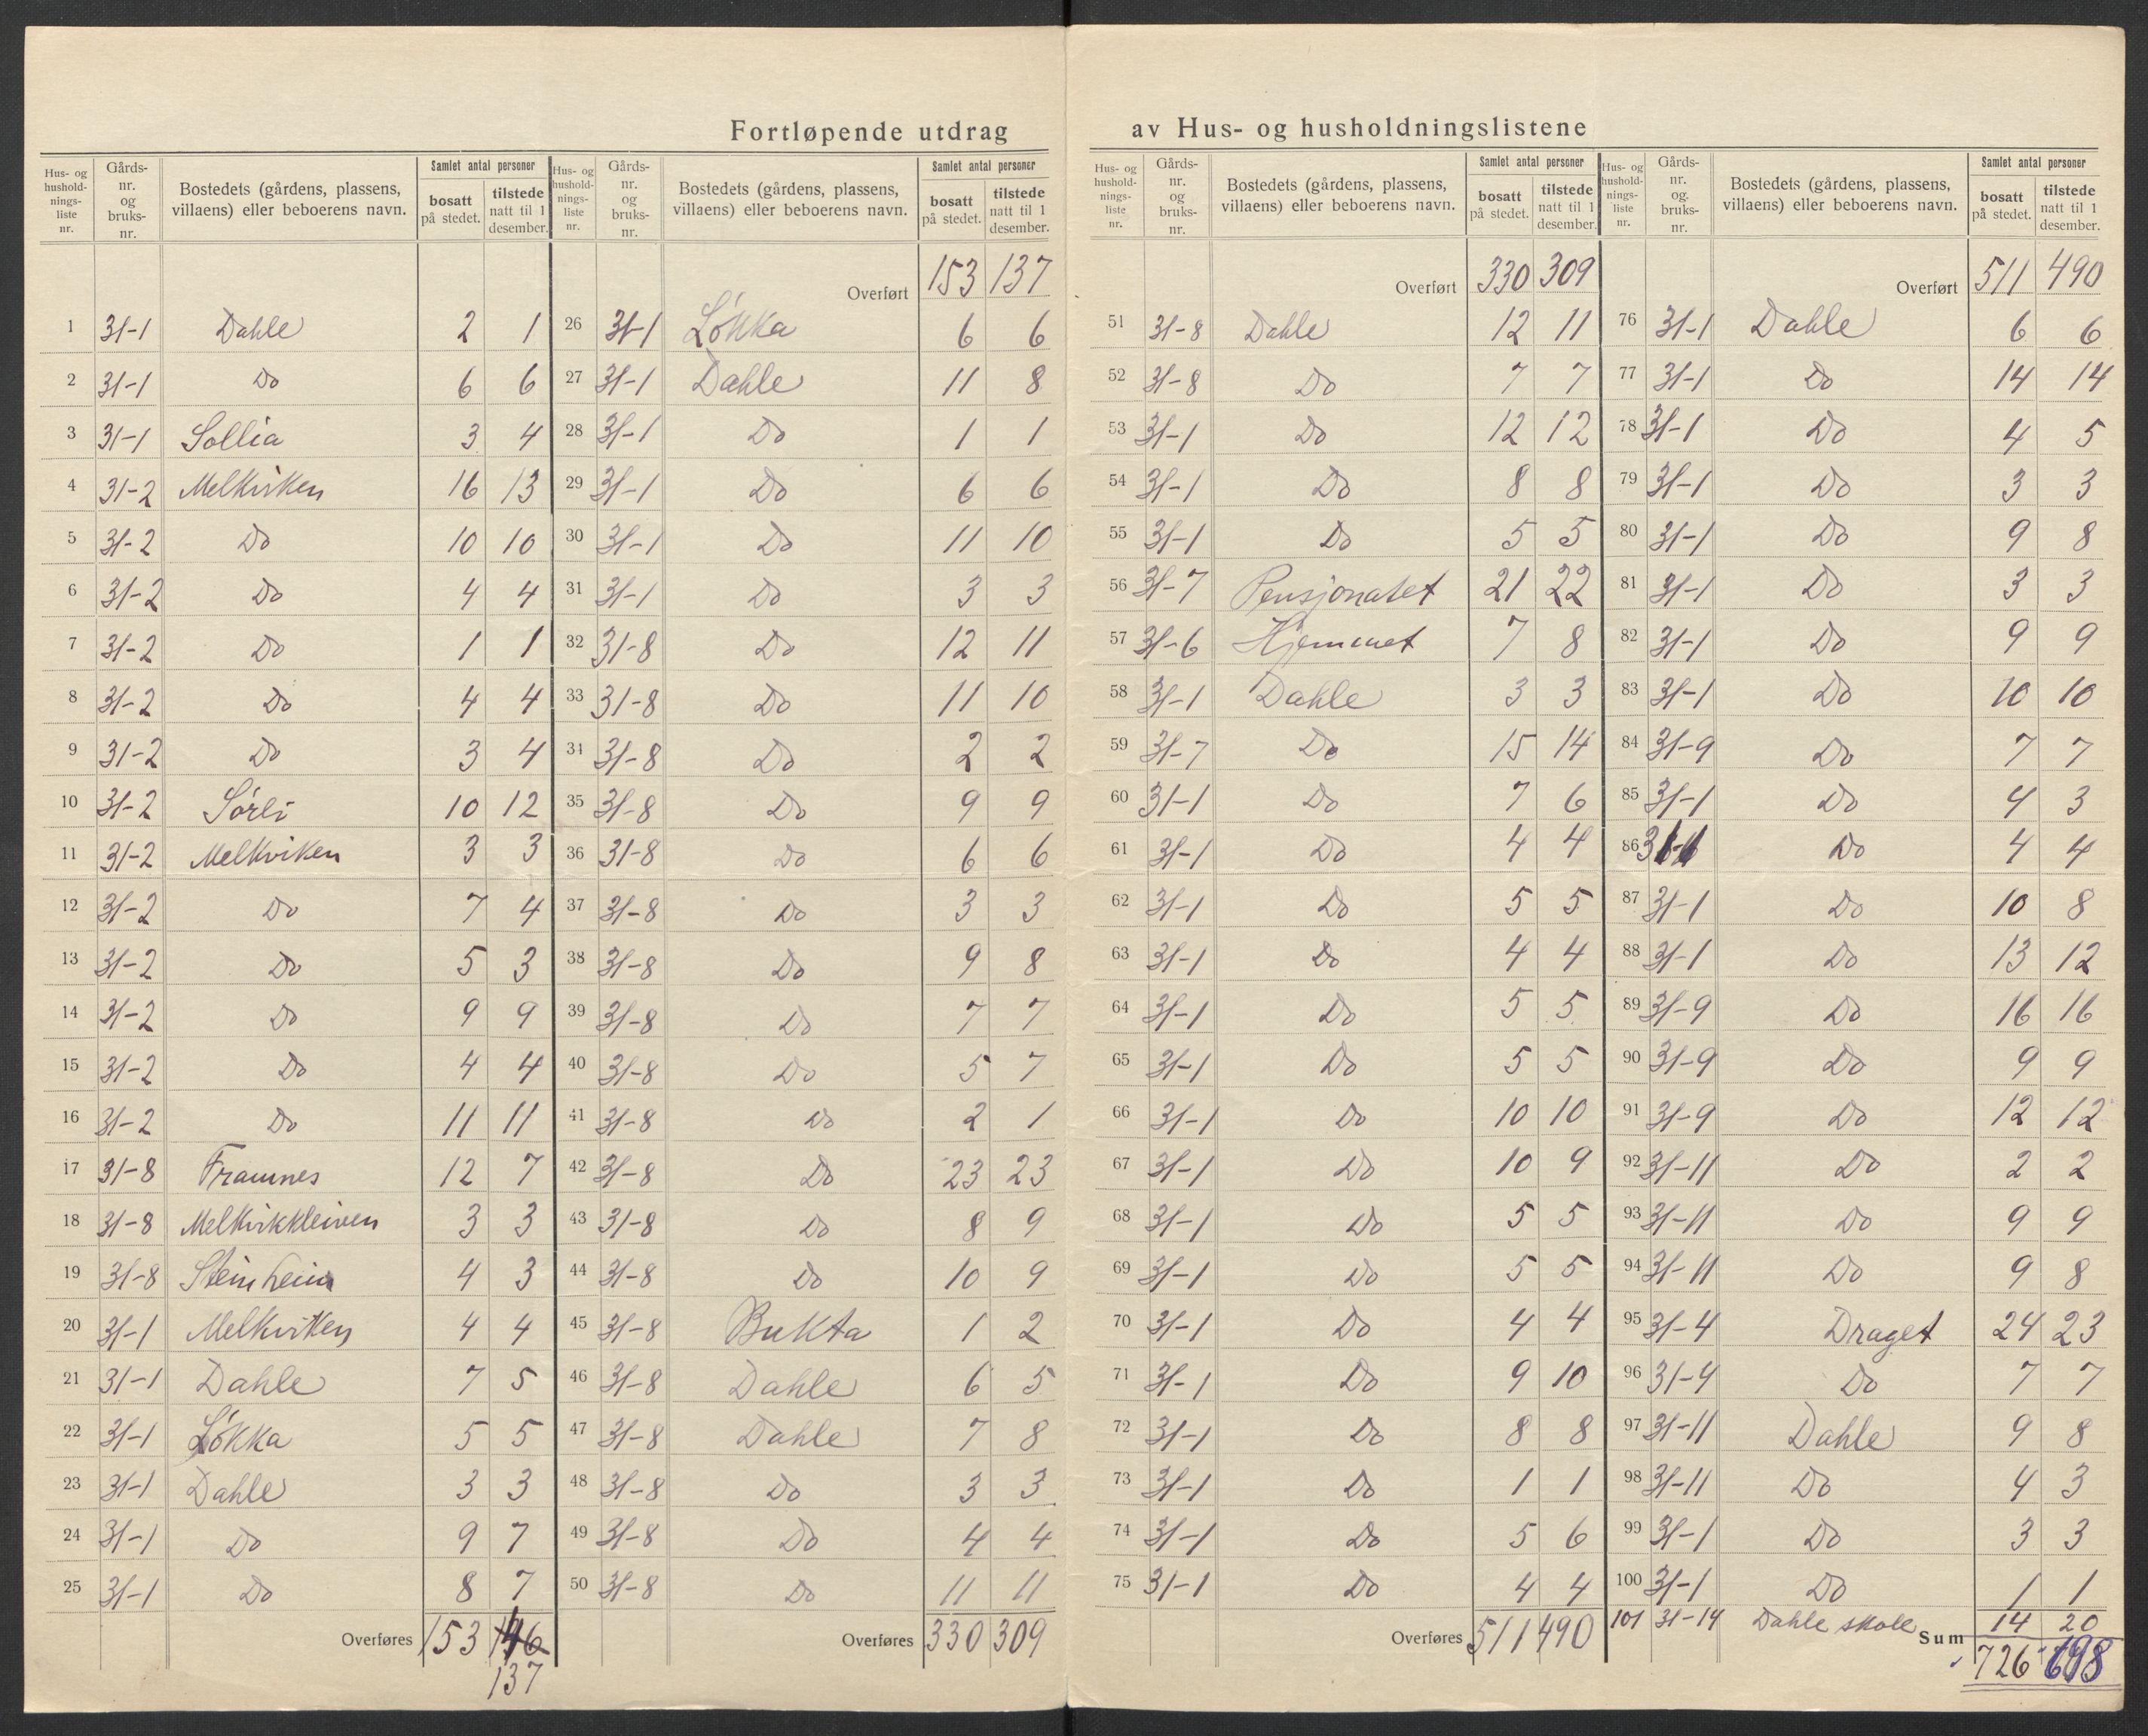 Fortløpende utdrag av Hus- og husholdningslistene
Hus- og hushold-nings-liste nr. Gårds-nr. og bruks-nr. Bostedets (gårdens, plassens, villaens) eller beboerens navn. Samlet antal personer bosatt på stedet. tilstede natt til 1 desember.
1 31-1 Dahle 2 1
2 31-1 Do 6 6
3 31-1 Sollia 3 4
4 31-2 Melkviken 16 13
5 31-2 Do 10 10
6 31-2 Do 4 4
7 31-2 Do 1 1
8 31-2 Do 4 4
9 31-2 Do 3 4
10 31-2 Sørli 10 12
11 31-2 Melkviken 3 3
12 31-2 Do 7 4
13 31-2 Do 5 3
14 31-2 Do 9 9
15 31-2 Do 4 4
16 31-2 Do 11 11
17 31-8 Framnes 12 7
18 31-8 Melkvikkleiven 3 3
19 31-8 Steinheim 4 3
20 31-1 Melkviken 4 4
21 31-1 Dahle 7 5
22 31-1 Løkka 5 5
23 31-1 Dahle 3 3
24 31-1 Do 9 7
25 31-1 Do 8 7
Overføres 153 146
137
Hus- og hushold-nings-liste nr. Gårds-nr. og bruks-nr. Bostedets (gårdens, plassens, villaens) eller beboerens navn. Samlet antal personer bosatt på stedet. tilstede natt til 1 desember.
Overført 153 137
26 31-1 Løkka 6 6
27 31-1 Dahle 11 8
28 31-1 Do 1 1
29 31-1 Do 6 6
30 31-1 Do 11 10
31 31-1 Do 3 3
32 31-8 Do 12 11
33 31-8 Do 11 10
34 31-8 Do 2 2
35 31-8 Do 9 9
36 31-8 Do 6 6
37 31-8 Do 3 3
38 31-8 Do 9 8
39 31-8 Do 7 7
40 31-8 Do 5 7
41 31-8 Do 2 1
42 31-8 Do 23 23
43 31-8 Do 8 9
44 31-8 Do 10 9
45 31-8 Bukta 1 2
46 31-8 Dahle 6 5
47 31-8 Dahle 7 8
48 31-8 Do 3 3
49 31-8 Do 4 4
50 31-8 Do 11 11
Overføres 330 309
Hus- og hushold-nings-liste nr. Gårds-nr. og bruks-nr. Bostedets (gårdens, plassens, villaens) eller beboerens navn. Samlet antal personer bosatt på stedet. tilstede natt til 1 desember.
Overført 330 309
51 31-8 Dahle 12 11
52 31-8 Do 7 7
53 31-1 Do 12 12
54 31-1 Do 8 8
55 31-1 Do 5 5
56 31-7 Pensjonatet 21 22
57 31-6 Hjemmet 7 8
58 31-1 Dahle 3 3
59 31-7 Do 15 14
60 31-1 Do 7 6
61 31-1 Do 4 4
62 31-1 Do 5 5
63 31-1 Do 4 4
64 31-1 Do 5 5
65 31-1 Do 5 5
66 31-1 Do 10 10
67 31-1 Do 10 9
68 31-1 Do 5 5
69 31-1 Do 5 5
70 31-1 Do 4 4
71 31-1 Do 9 10
72 31-1 Do 8 8
73 31-1 Do 1 1
74 31-1 Do 5 6
75 31-1 Do 4 4
Overføres 511 490
Hus- og hushold-nings-liste nr. Gårds-nr. og. bruks-nr. Bostedets (gårdens, plassens, villaens) eller beboerens navn. Samlet antal personer bosatt på stedet. tilstede natt til 1 desember.
Overført 511 490
76 31-1 Dahle 6 6
77 31-1 Do 14 14
78 31-1 Do 4 5
79 31-1 Do 3 3
80 31-1 Do 9 8
81 31-1 Do 3 3
82 31-1 Do 9 9
83 31-1 Do 10 10
84 31-9 Do 7 7
85 31-1 Do 4 3
86 Do 4 4
87 31-1 Do 10 8
88 31-1 Do 13 12
89 31-9 Do 16 16
90 31-9 Do 9 9
91 31-9 Do 12 12
92 31-11 Do 2 2
93 31-11 Do 9 9
94 31-11 Do 9 8
95 31-4 Draget 24 23
96 31-4 Do 7 7
97 31-11 Dahle 9 8
98 31-11 Do 4 3
99 31-1 Do 3 3
100 31-1 Do 1 1
101 31-14 Dahle skole 14 20
Sum 726 698